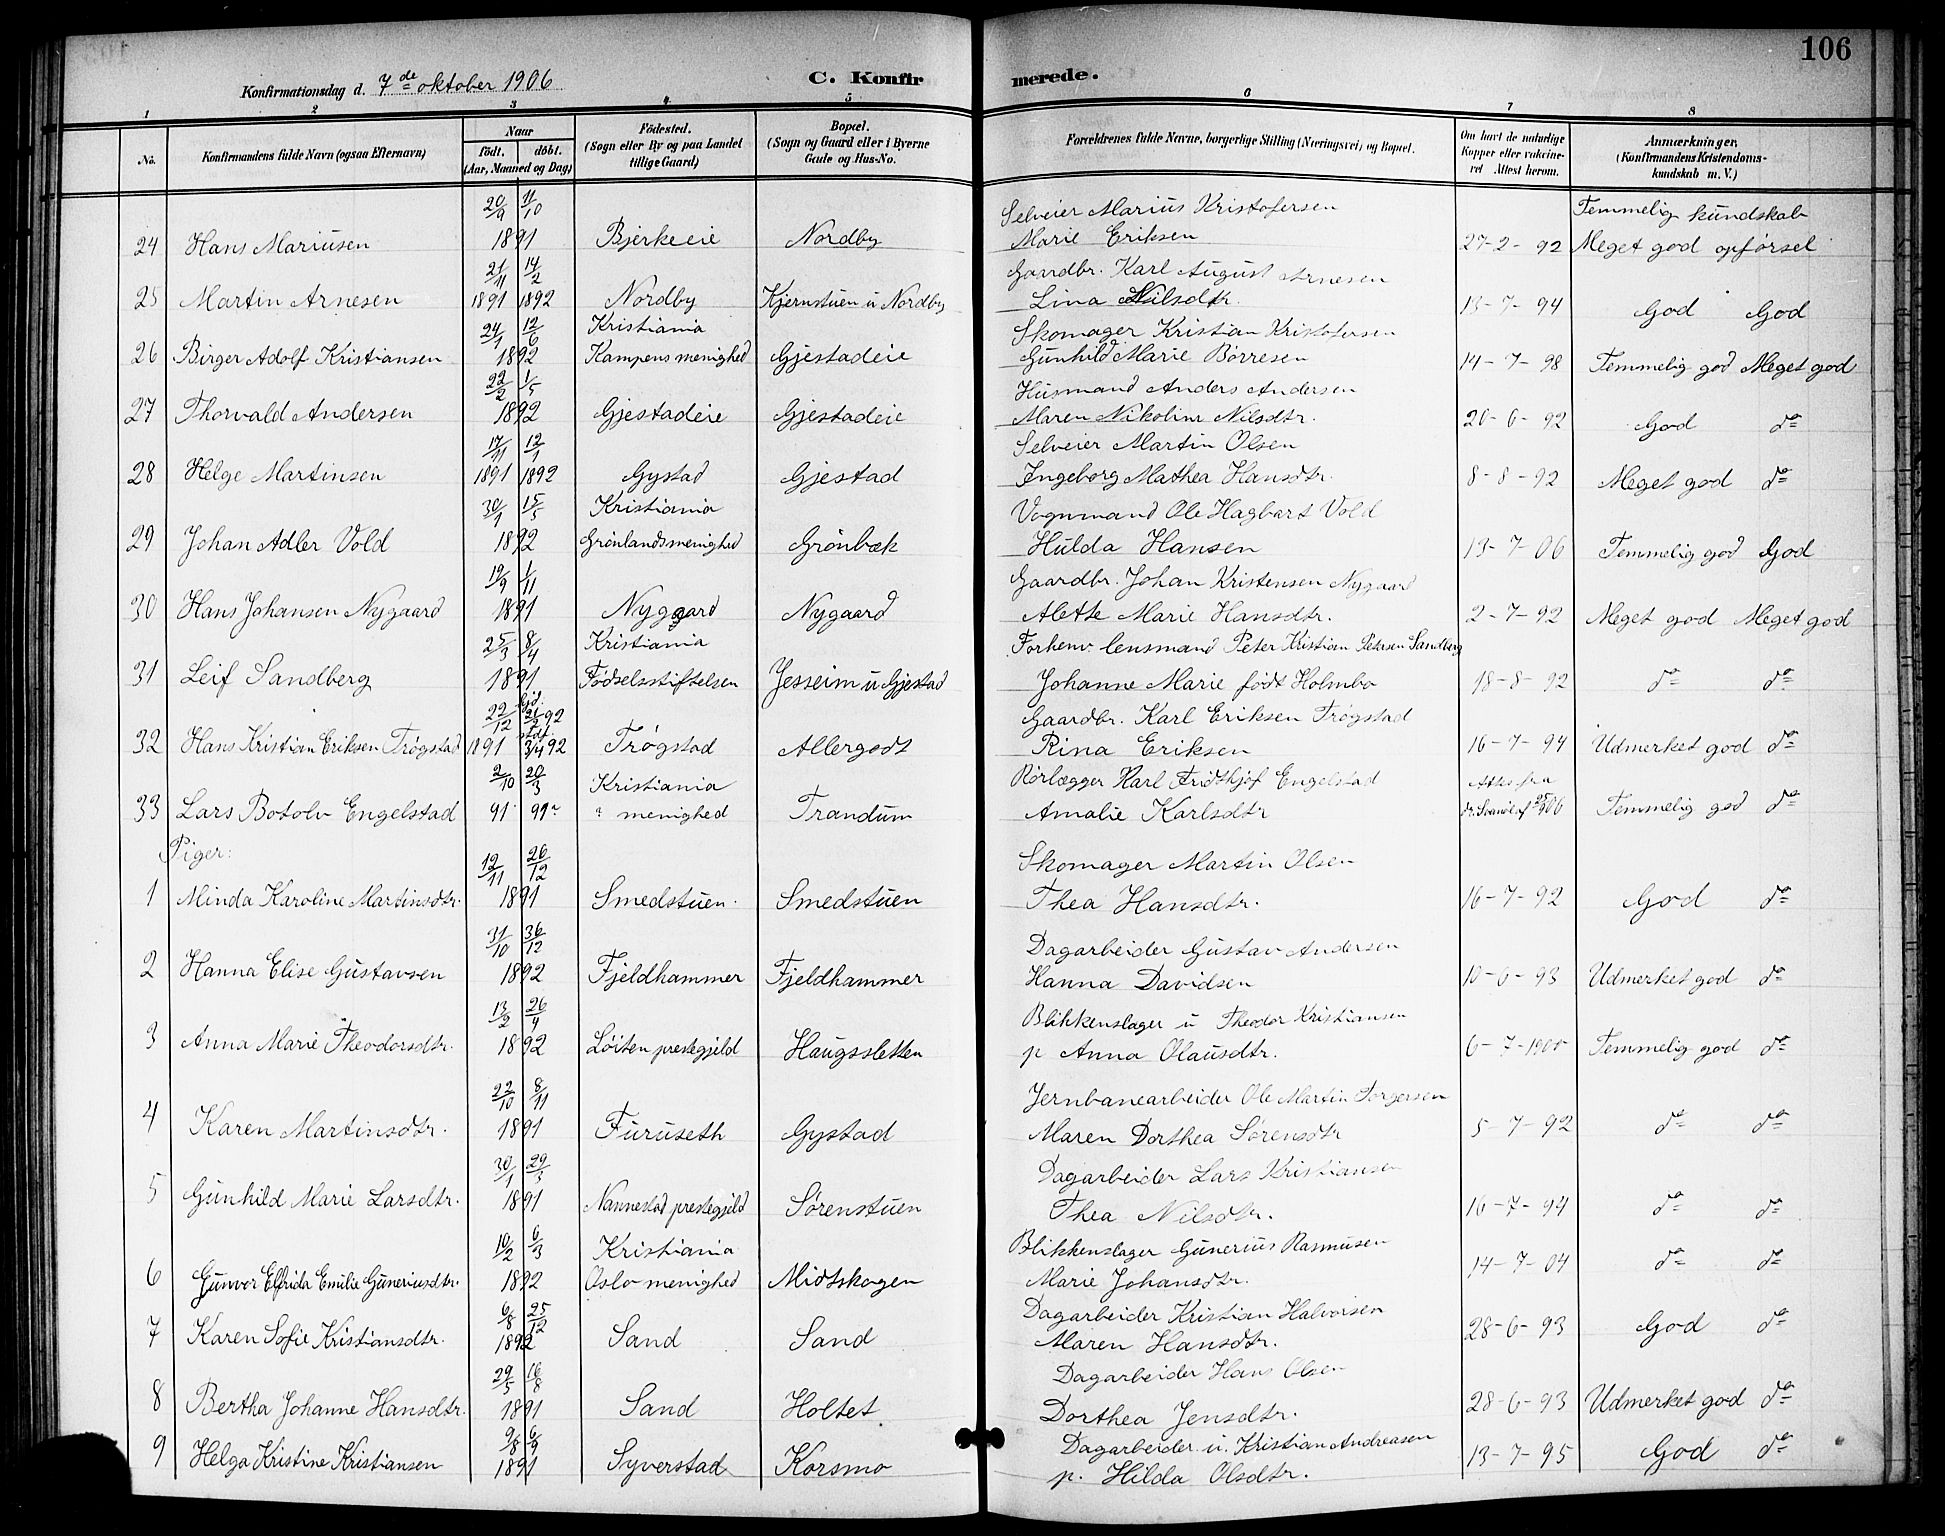 106
Konfirmationsdag d. 7de oktober 1906
C. Konfirmerede.
1 2 3 4 5 6 7 8
No.
Konfirmandens fulde Navn (ogsaa Efternavn)
Naar
födt. döbt.
(Aar, Maaned og Dag)
Födested.
(Sogn eller By og paa Landet
tillige Gaard)
Bopæl.
(Sogn og Gaard eller i Byerne
Gade og Hus-No.
Forældrenes fulde Navne, borgerlige Stilling (Næringsvei) og Bopæl.
Om havt de naturlige
Kopper eller vakcine-
ret Attest herom.
Anmærkninger,
(Konfirmandens Kristendoms-
kundskab m. V.)
20/9 11/10 Selveier Marius Kristofersen Temmelig kundskab
24 Hans Mariusen 1891 Bjerkeeie Nordby Marie Eriksen 27-2-92 Meget god opförsel
21/11 14/2 Gaardbr. Karl August Arnesen
25 Martin Arnesen 1891 1892 Nordby Kjernstuen u Nordby Lina Nilsdtr. 13-7-94 God God
24/1 12/6 Kristiania Skomager Kristian Kristofersen
26 Birger Adolf Kristiansen 1892 Kampens menighed Gjestadeie Gunhild Marie Börresen 14-7-98 Temmelig god Meget god
22/2 1/5 Husmand Anders Andersen
27 Thorvald Andersen 1892 Gjestadeie Gjestadeie Maren Nikoline Nilsdtr. 20-6-92 God do
17/11 12/1 Selveier Martin Olsen
28 Helge Martinsen 1891 1892 Gystad Gjestad Ingeborg Mathea Hansdtr. 8-8-92 Meget god do
30/1 15/5 Kristiania Vognmand Ole Hagbart Vold
29 Johan Adler Vold 1892 Grönlandsmenighed Grönbæk Hulda Hansen 13-7-06 Temmelig god God
19/9 1/11 Gaardbr. Johan Kristensen Nygaard
30 Hans Johansen Nygaard 1891 Nygaard Nygaard Alette Marie Hansdtr. 2-7-92 Meget god Meget god
25/3 8/4 Kristiania Forhenv. lensmand Peter Kristian Petersen Sandberg
31 Leif Sandberg 1891 Födselsstiftelsen Jesseim u Gjestad Johanne Marie födt Holmbo 18-8-92 do do
22/12 hjd. 21/2 92 Gaardbr. Karl Eriksen Trögstad
32 Hans Kristian Eriksen Trögstad 1891 stdf. 3/4 92 Trögstad Allergodt Rina Eriksen 16-7-94 Udmerket god do
2/10 20/3 Kristiania Rörlægger Karl Fridthjof Engelstad Attes fra
33 Lars Botolv Engelstad 91 menighed Trandum Amalie Karlsdtr 906 Temmelig god do
Piger:
12/11 26/12 Skomager Martin Olsen
1 Minda Karoline Martinsdtr. 1891 Smedstuen Smedstuen Thea Hansdtr. 16-7-92 God do
31/10 36/12 Dagarbeider Gustav Andersen
2 Hanna Elise Gustavsen 1892 Fjeldhammer Fjeldhammer Hanna Davidsen 10-6-93 Udmerket god do
13/2 26/4 Blikkenslager u Theodor Kristiansen
3 Anna Marie Theodorsdtr. 1892 Löiten prestegjeld Haugssletten p Anna Olausdtr. 6-7-1900 Temmelig god do
22/10 8/11 Jernbanearbeider Ole Martin Torgersen
4 Karen Martinsdtr. 1891 Furuseth Gystad Maren Dorthea Sörensdtr 5-7-92 do do
30/1 29/3 Dagarbeider Lars Kristiansen
5 Gunhild Marie Larsdtr. 1891 Nannestad prestegjeld Sörenstuen Thea Nilsdtr. 16-7-94 do do
10/2 6/3 Kristiania Blikkenslager Gunerius Rasmusen
6 Gunvor Elfrida Emilie Guneriusdtr. 1892 Oslo menighed Midtskogen Marie Johansdtr. 14-7-04 do do
6/8 25/12 Dagarbeider Kristian Halvorsen
7 Karen Sofie Kristiansdtr. 1892 Sand Sand Maren Hansdtr. 28-6-93 God do
29/5 16/8 Dagarbeider Hans Olsen
8 Bertha Johanne Hansdtr. 1891 Sand Holtet Dorthea Jensdtr. 28-6-93 Udmerket god do
9/8 6/9 Dagarbeider u. Kristian Andreasen
9 Helga Kristine Kristiansen 1891 Syverstad Korsmo p. Hilda Olsdtr. 13-7-95 God do